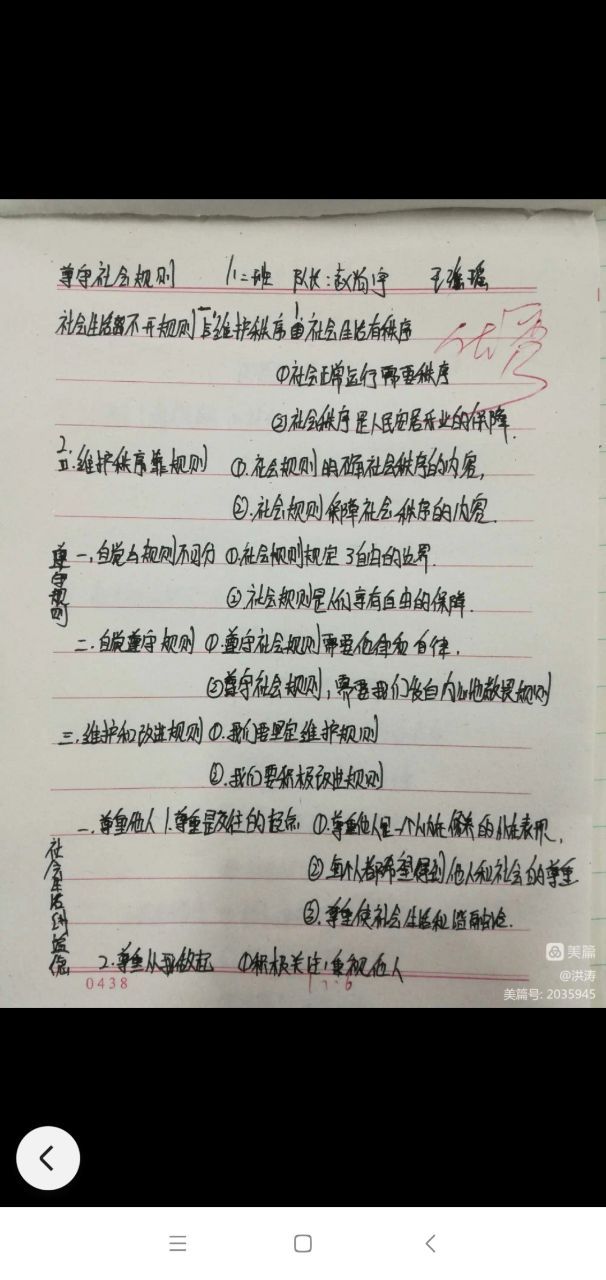 尊守社会规则 八二班 队长:赵尚宇 王瑶瑶
社会生活离不开规则 一、维护秩序 1.社会生活有秩序
①社会正常运行需要秩序
②社会秩序是人民安居乐业的保障.
2.维护秩序靠规则 ①.社会规则明确社会秩序的内容,
②.社会规则保障社会秩序的内容.
尊守规则
一,自觉与规则不可分 ①.社会规则规定了自由的边界.
②社会规则是人们享有自由的保障.
二.自觉遵守规则 ①.遵守社会规则需要他律和自律.
②遵守社会规则,需要我们发自内心地敬畏规则
三.维护和改进规则 ①.我们要坚定维护规则
②.我们要积极改进规则
社会生活讲道德
一.尊重他人 1.尊重是交往的起点 ①尊重他人是一个人内在修养的外在表现,
②每个人都希望得到他人和社会的尊重
③.尊重使社会生活和谐融洽.
2.尊重从我做起 ①积极关注,重视他人
0438
美篇
@洪涛
美篇号: 2035945